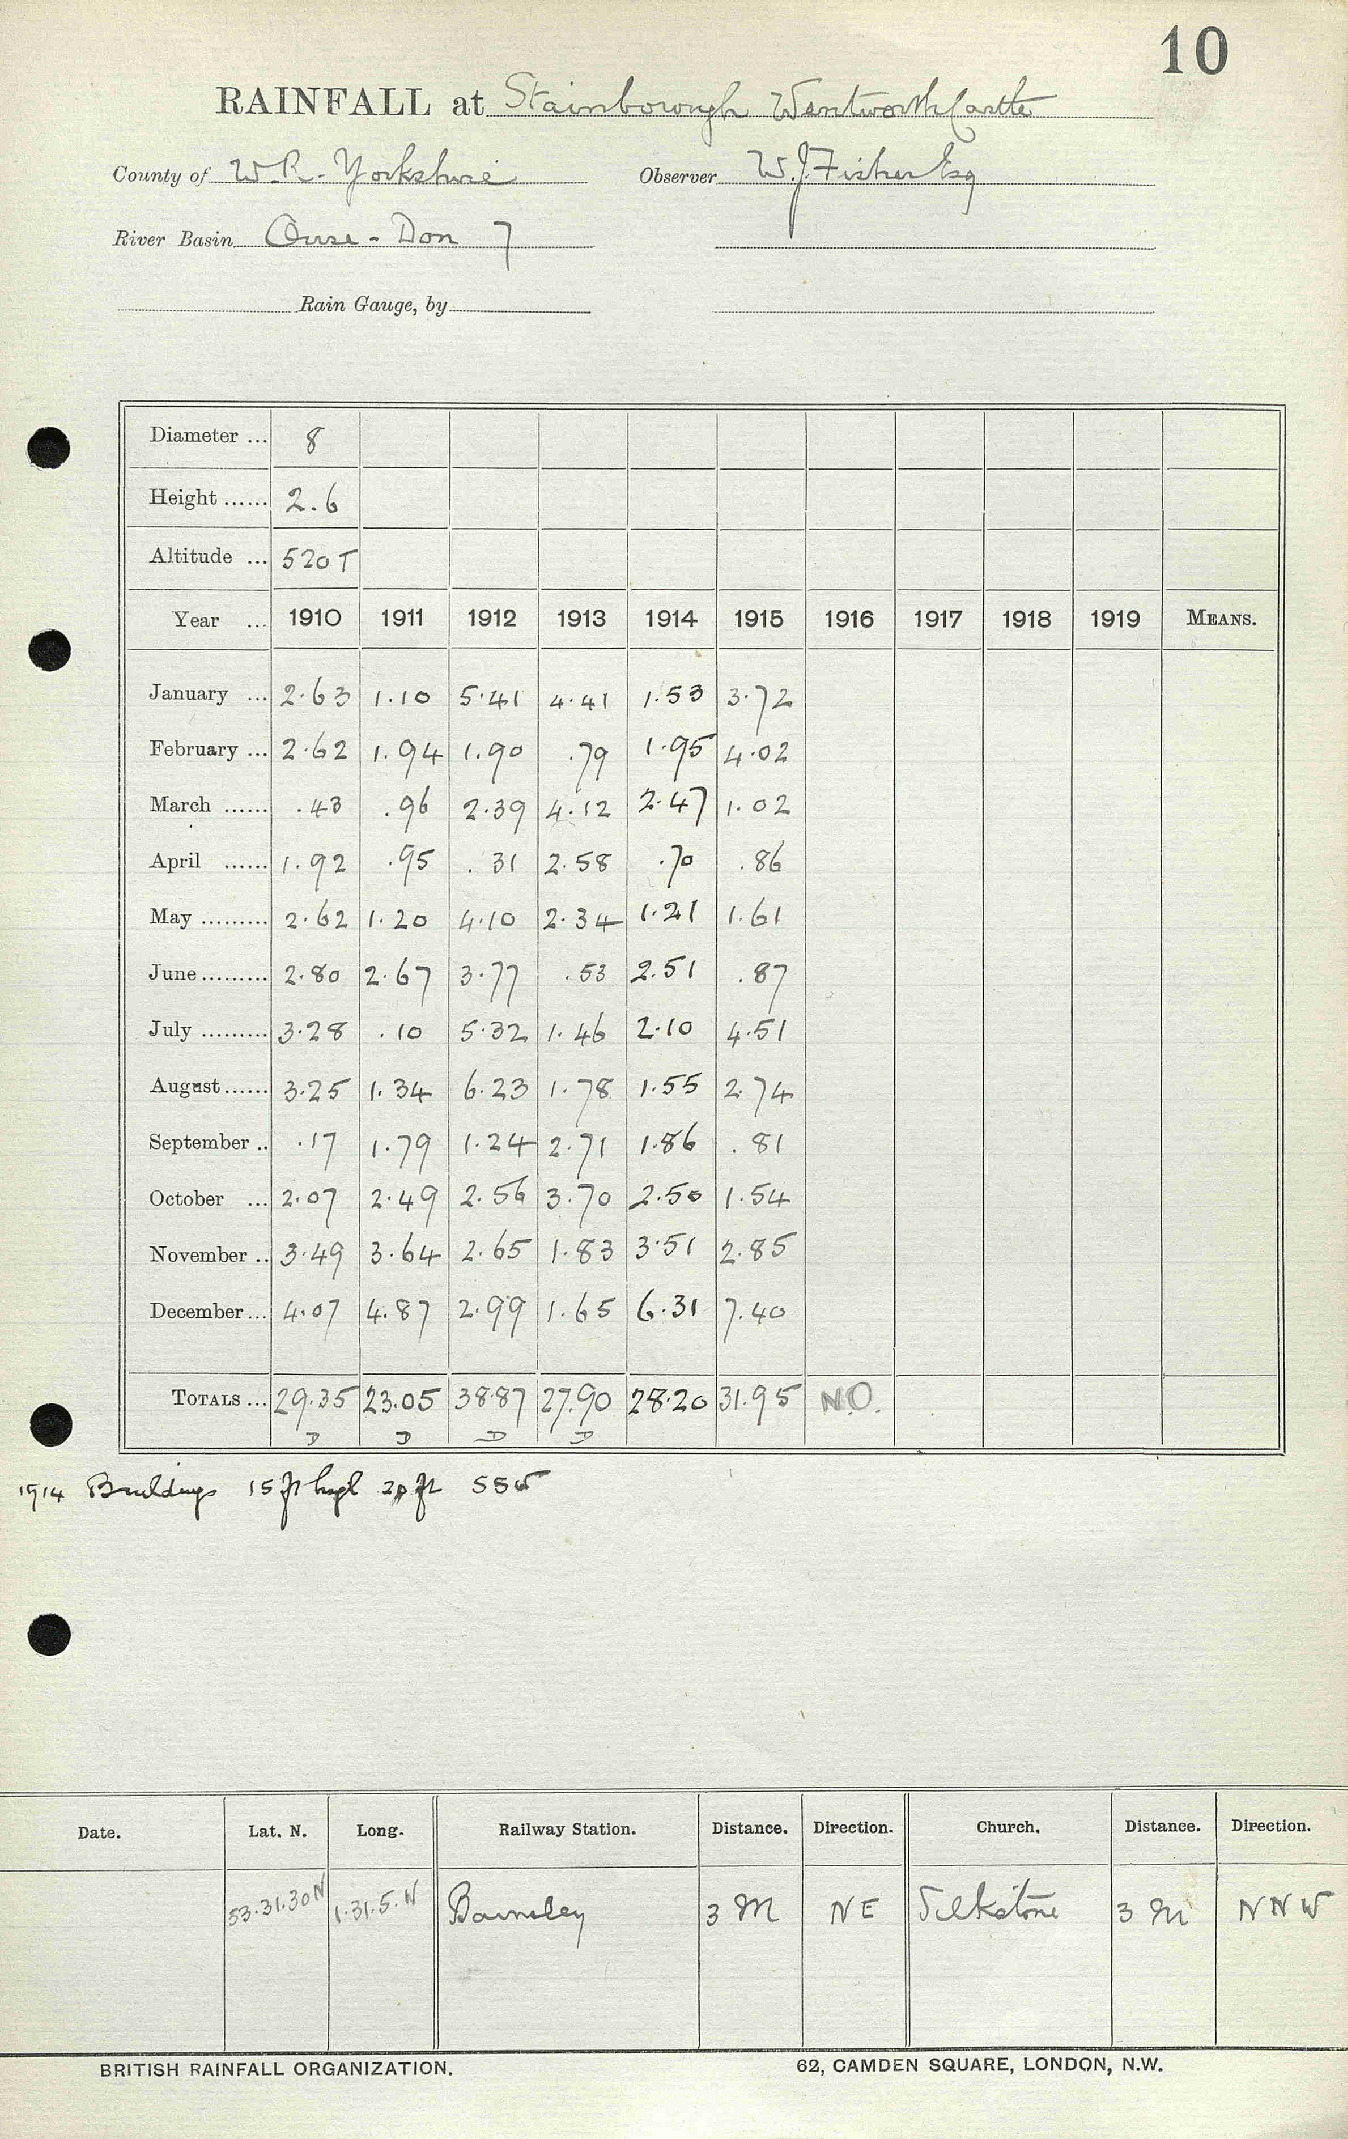 10
RAINFALL at Stainborough Wentworth Castle
County of W.R. Yorkshire Observer W.J. Fisher Esq
River Basin Ouse - Don 7
Rain Gauge, by
Diameter ... 8
Height ...... 2.6
Altitude ... 520 T
Year ... 1910 1911 1912 1913 1914 1915 1916 1917 1918 1919 MEANS.
January ... 2.63 1.10 5.41 4.41 1.53 3.72
February ... 2.62 1.94 1.90 .79 1.95 4.02
March ...... .43 .96 2.39 4.12 2.47 1.02
April ...... 1.92 .95 .31 2.58 .70 .86
May ......... 2.62 1.20 4.10 2.34 1.21 1.61
June ......... 2.80 2.67 3.77 .53 2.51 .87
July ......... 3.28 .10 5.32 1.46 2.10 4.51
August ...... 3.25 1.34 6.23 1.78 1.55 2.74
September .. .17 1.79 1.24 2.71 1.86 .81
October ... 2.07 2.49 2.56 3.70 2.50 1.54
November .. 3.49 3.64 2.65 1.83 3.51 2.85
December ... 4.07 4.87 2.99 1.65 6.31 7.40
TOTALS ... 29.35 23.05 38.87 27.90 28.20 31.95 N.O.
D D D D
1914 Buildings 15 ft high 20 ft SSW
Date. Lat. N. Long. Railway Station. Distance. Direction. Church. Distance. Direction.
53.31.30 N 1.31.5.W Barnsley 3 M NE Silkstone 3 M NNW
BRITISH RAINFALL ORGANIZATION. 62, CAMDEN SQUARE, LONDON, N.W.